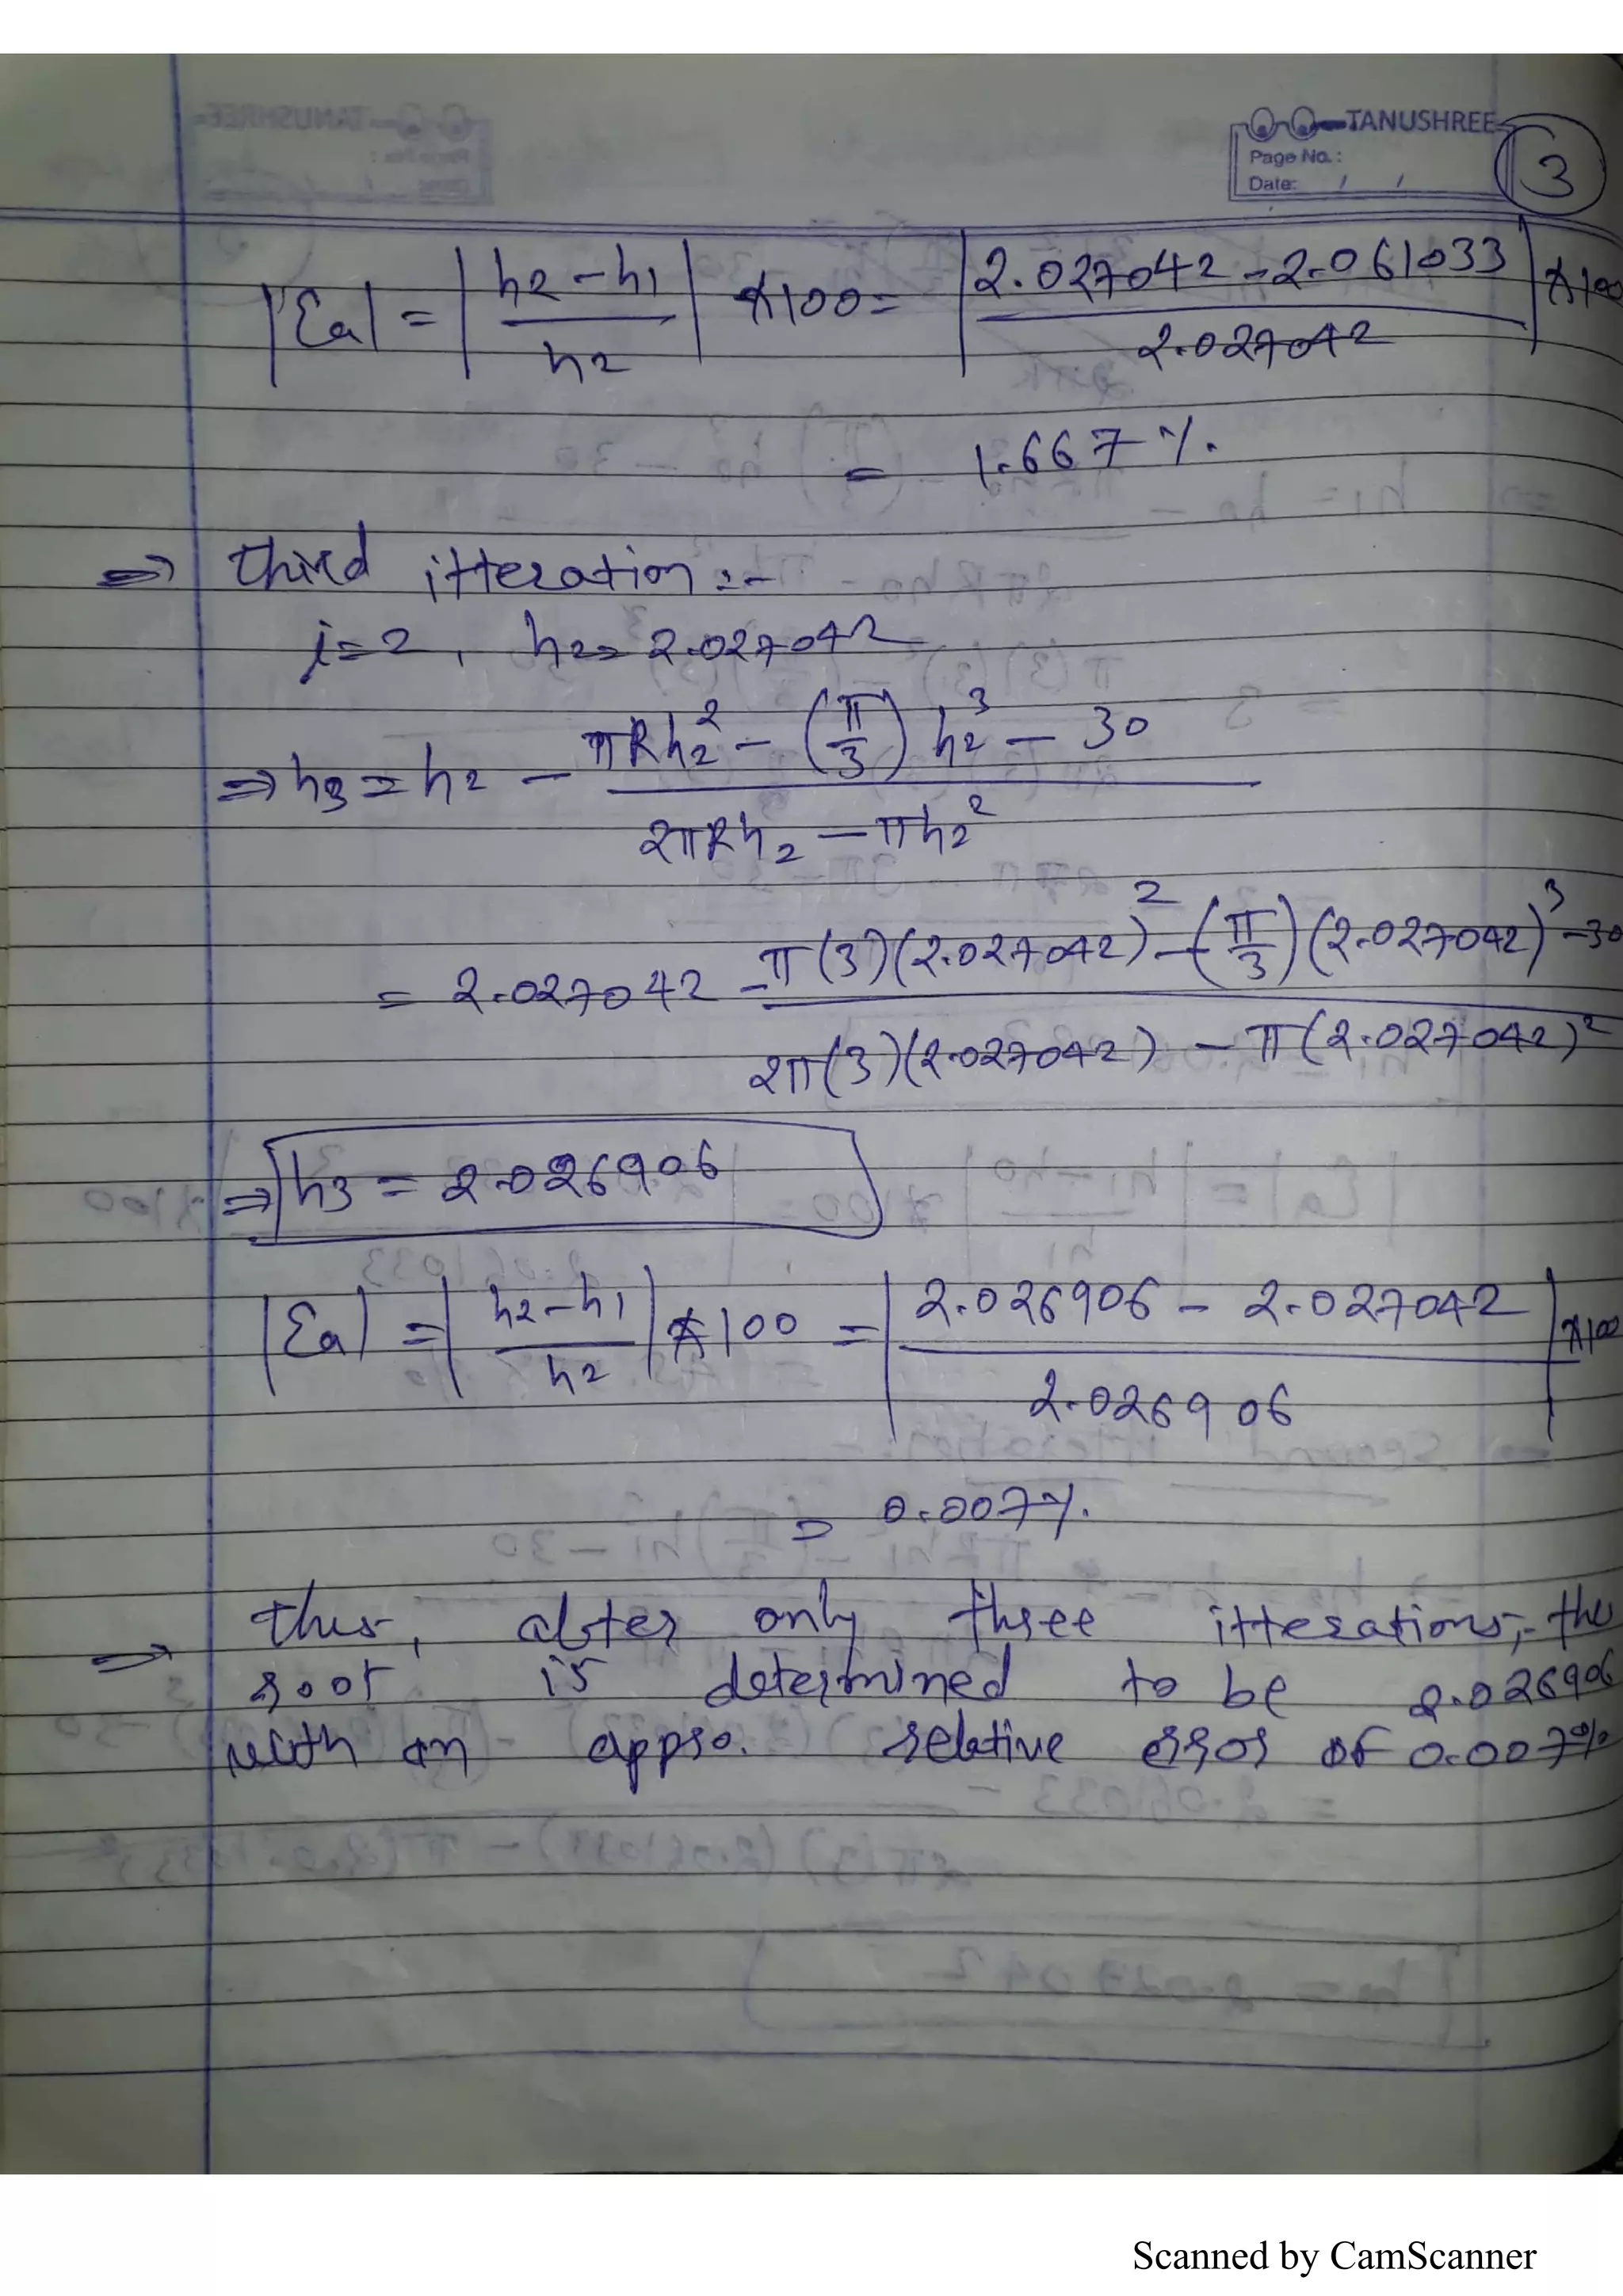 TANUSHREE
Page No.:
Date: / /
3
|Ea| = |h2 - h1 / h2| * 100 = |2.027042 - 2.061033 / 2.027042| * 100
= 1.667 %.
⇒ third itteration :-
i = 2, h2 = 2.027042
⇒ h3 = h2 - πRh2² - (π/3) h2³ - 30 / 2πRh2 - πh2²
= 2.027042 - π(3)(2.027042)² - (π/3)(2.027042)³ - 30 / 2π(3)(2.027042) - π(2.027042)²
⇒ h3 = 2.026906
|Ea| = |h2 - h1 / h2| * 100 = |2.026906 - 2.027042 / 2.026906| * 100
= 0.007 %.
⇒ thus, after only three itterations, the
root is determined to be 2.026906
with an appro. relative error of 0.007%
Scanned by CamScanner